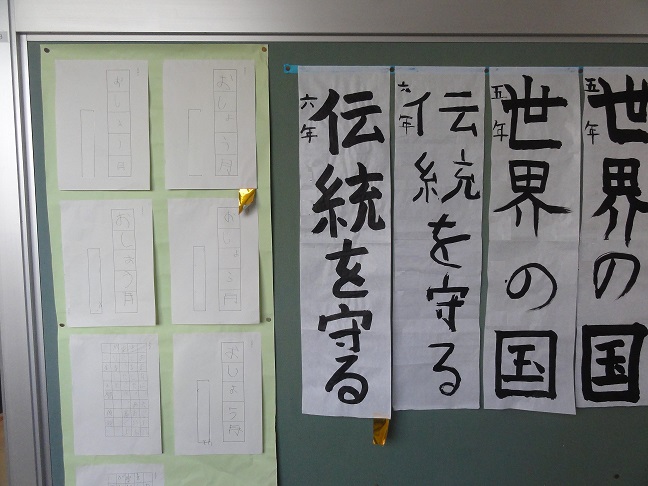 世界の国
五年
世界の国
五年
伝統を守る
六年
伝統を守る
六年
おしょう月
おしょう月
おしょう月
おしょう月
おしょう月